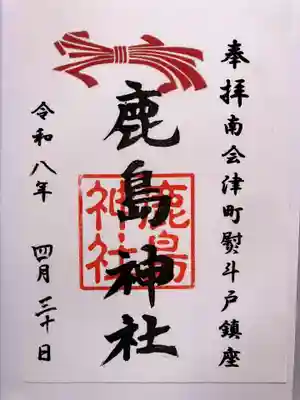 奉拝 南会津町熨斗戸鎮座
鹿島神社
鹿島神社
令和八年 四月 三十日